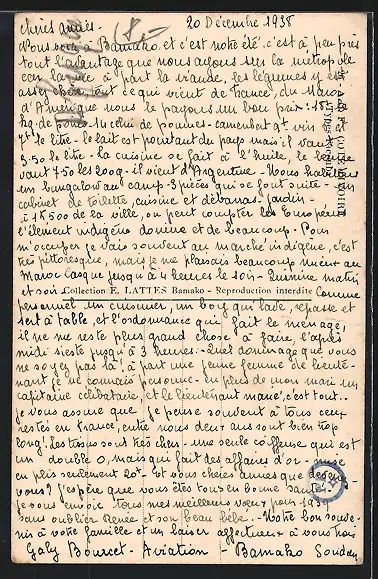 20 Décembre 1938
Chères amies.
Nous voici à Bamako et c'est notre été. c'est à peu près
tout l'avantage que nous ayons sur la métropole
car la vie à part la viande, les légumes y est
assez chère, tout ce qui vient de France, du Maroc
d'Amérique nous le payons un bon prix.
kg de pommes camembert 9f vin
7f le litre. le lait est pourtant du pays mais il vaut
3.50 le litre. La cuisine se fait à l'huile, le beurre
vaut 7.50 les 200g. il vient d'Argentine. Nous habitons
un bungalow au camp. 3 pièces qui se font suite. un
cabinet de toilette, cuisine et débarras. jardin.
à 1K500 de la ville, on peut compter les Européens
l'élément indigène domine et de beaucoup. Pour
m'occuper je vais souvent au marché indigène, c'est
très pittoresque, mais je me plaisais beaucoup mieux au
Maroc. Casque jusqu'à 4 heures le soir. Quinine matin
et soir. Comme
Collection E. LATTES Bamako - Reproduction interdite
personnel un cuisinier, un boy qui lave, repasse et
sert à table, et l'ordonnance qui fait le ménage,
il ne me reste plus grand chose à faire, l'après
midi sieste jusqu'à 3 heures. Quel dommage que vous
ne soyez pas là ! à part une jeune femme de lieute-
nant je ne connais personne. en plus de mon mari un
capitaine célibataire, et le lieutenant marié, c'est tout.
Je vous assure que je pense souvent à tous ceux
restés en France, entre nous deux ans sont bien trop
long. Les tissus sont très chers. une seule coiffeuse qui est
un double 0, mais qui fait des affaires d'or. mise
en plis seulement 20f. et vous chères amies que devenez
vous ? j'espère que vous êtes tous en bonne santé.
Je vous envoie tous mes meilleurs vœux pour 1939
sans oublier Renée et son beau bébé. Notre bon souve-
nir à votre famille et un baiser affectueux à vous trois
Gaby Bourcet - Aviation - Bamako Soudan